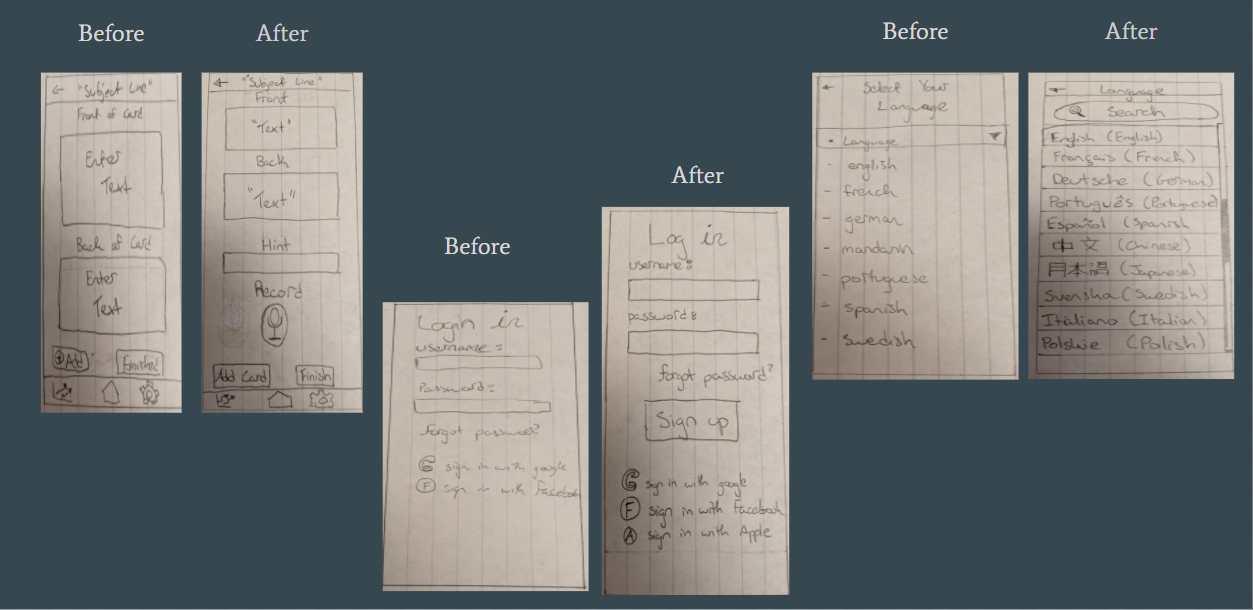 Before
← "Subject Line"
Front of Card
Enter
Text
Back of Card
Enter
Text
+ Add
Finished
After
← "Subject Line"
Front
"Text"
Back
"Text"
Hint
Record
Add Card
Finish
Before
Login in
username:
Password:
forgot password?
G sign in with google
F sign in with Facebook
After
Log in
username:
password:
forgot password?
Sign up
G sign in with google
F sign in with Facebook
A sign in with Apple
Before
← Select Your
Language
• Language
· english
- french
- german
- mandarin
- portuguese
- spanish
- swedish
After
← Language
Search
English (English)
Français (French)
Deutsche (German)
Português (Portuguese)
Español (Spanish
中文 (Chinese)
日本語 (Japanese)
Svenska (Swedish)
Italiano (Italian)
Polskie (Polish)